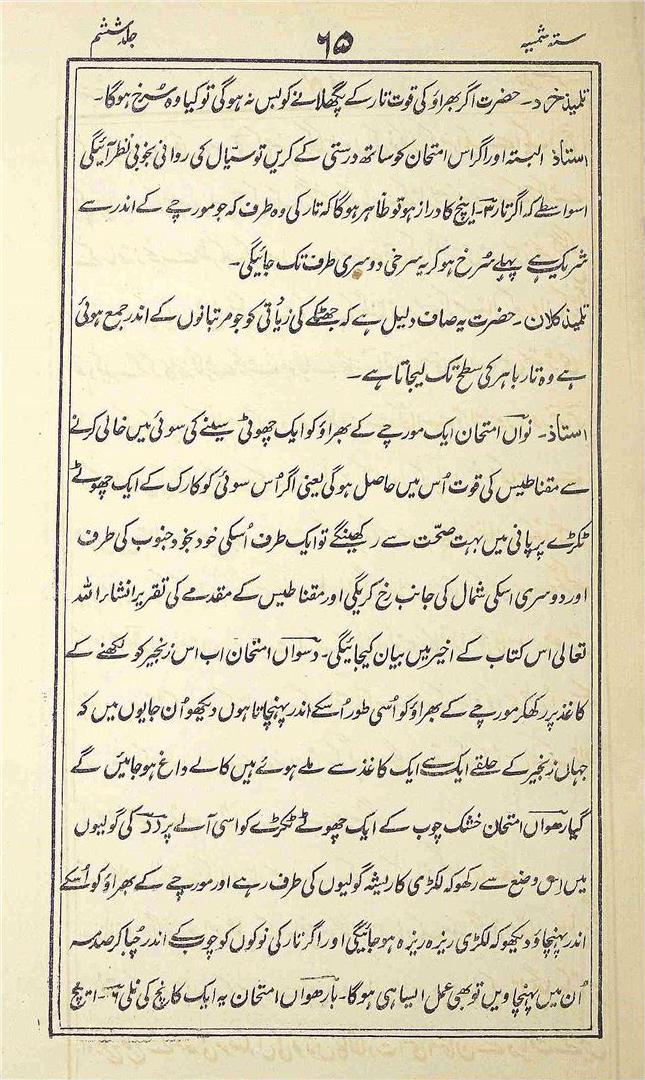 ستہ شمسیہ ۶۵ جلد ششم
تلمیذ خرد۔ حضرت اگر بھراؤ کی قوت تار کے پگھلانے کو بس نہ ہوگی تو کیا وہ سُرخ ہوگا۔
استاذ البتہ اور اگر اس امتحان کو ساتھ درستی کے کریں تو سیّال کی روانی بخوبی نظر آئیگی
اسواسطے کہ اگر تار ۳۔ اِنچ کا دراز ہو تو ظاہر ہوگا کہ تار کی وہ طرف کہ جو مورچے کے اندر سے
شریک ہے پہلے سُرخ ہو کر یہ سرخی دوسری طرف تک جائیگی۔
تلمیذ کلان۔ حضرت یہ صاف دلیل ہے کہ جھٹکے کی زیادتی کو جو مرتبانوں کے اندر جمع ہوئی
ہے وہ تار باہر کی سطح تک لیجاتا ہے۔
استاذ۔ نواں امتحان ایک مورچے کے بھراؤ کو ایک چھوٹی سینے کی سوئی میں خالی کرنے
سے مقناطیس کی قوت اُس میں حاصل ہوگی یعنی اگر اُس سوئی کو کارک کے ایک چھوٹے
ٹکڑے پر پانی میں بہت صحت سے رکھینگے تو ایک طرف اُسکی خود بخود جنوب کی طرف
اور دوسری اسکی شمال کی جانب رخ کریگی اور مقناطیس کے مقدمے کی تقریر انشاء اللہ
تعالی اس کتاب کے اخیر میں بیان کیجائیگی۔ دسواں امتحان اب اس زنجیر کو لکھنے کے
کاغذ پر رکھکر مورچے کے بھراؤ کو اُسی طور اُسکے اندر پہنچاتا ہوں دیکھو اُن جایوں میں کہ
جہاں زنجیر کے حلقے ایک سے ایک کاغذ سے ملے ہوئے ہیں کالے داغ ہو جائیں گے
گیارھواں امتحان خشک چوب کے ایک چھوٹے ٹکڑے کو اسی آلے پر دَدَ کی گولیوں
میں اِس وضع سے رکھو کہ لکڑی کا ریشہ گولیوں کی طرف رہے اور مورچے کے بھراؤ کو اُسکے
اندر پہنچاؤ دیکھو کہ لکڑی ریزہ ریزہ ہو جائیگی اور اگر تار کی نوکوں کو چوب کے اندر چُپا کر صدمہ
اُن میں پہنچاویں تو بھی عمل ایسا ہی ہوگا۔ بارھواں امتحان یہ ایک کانچ کی نلی ۶۔ اِنچ